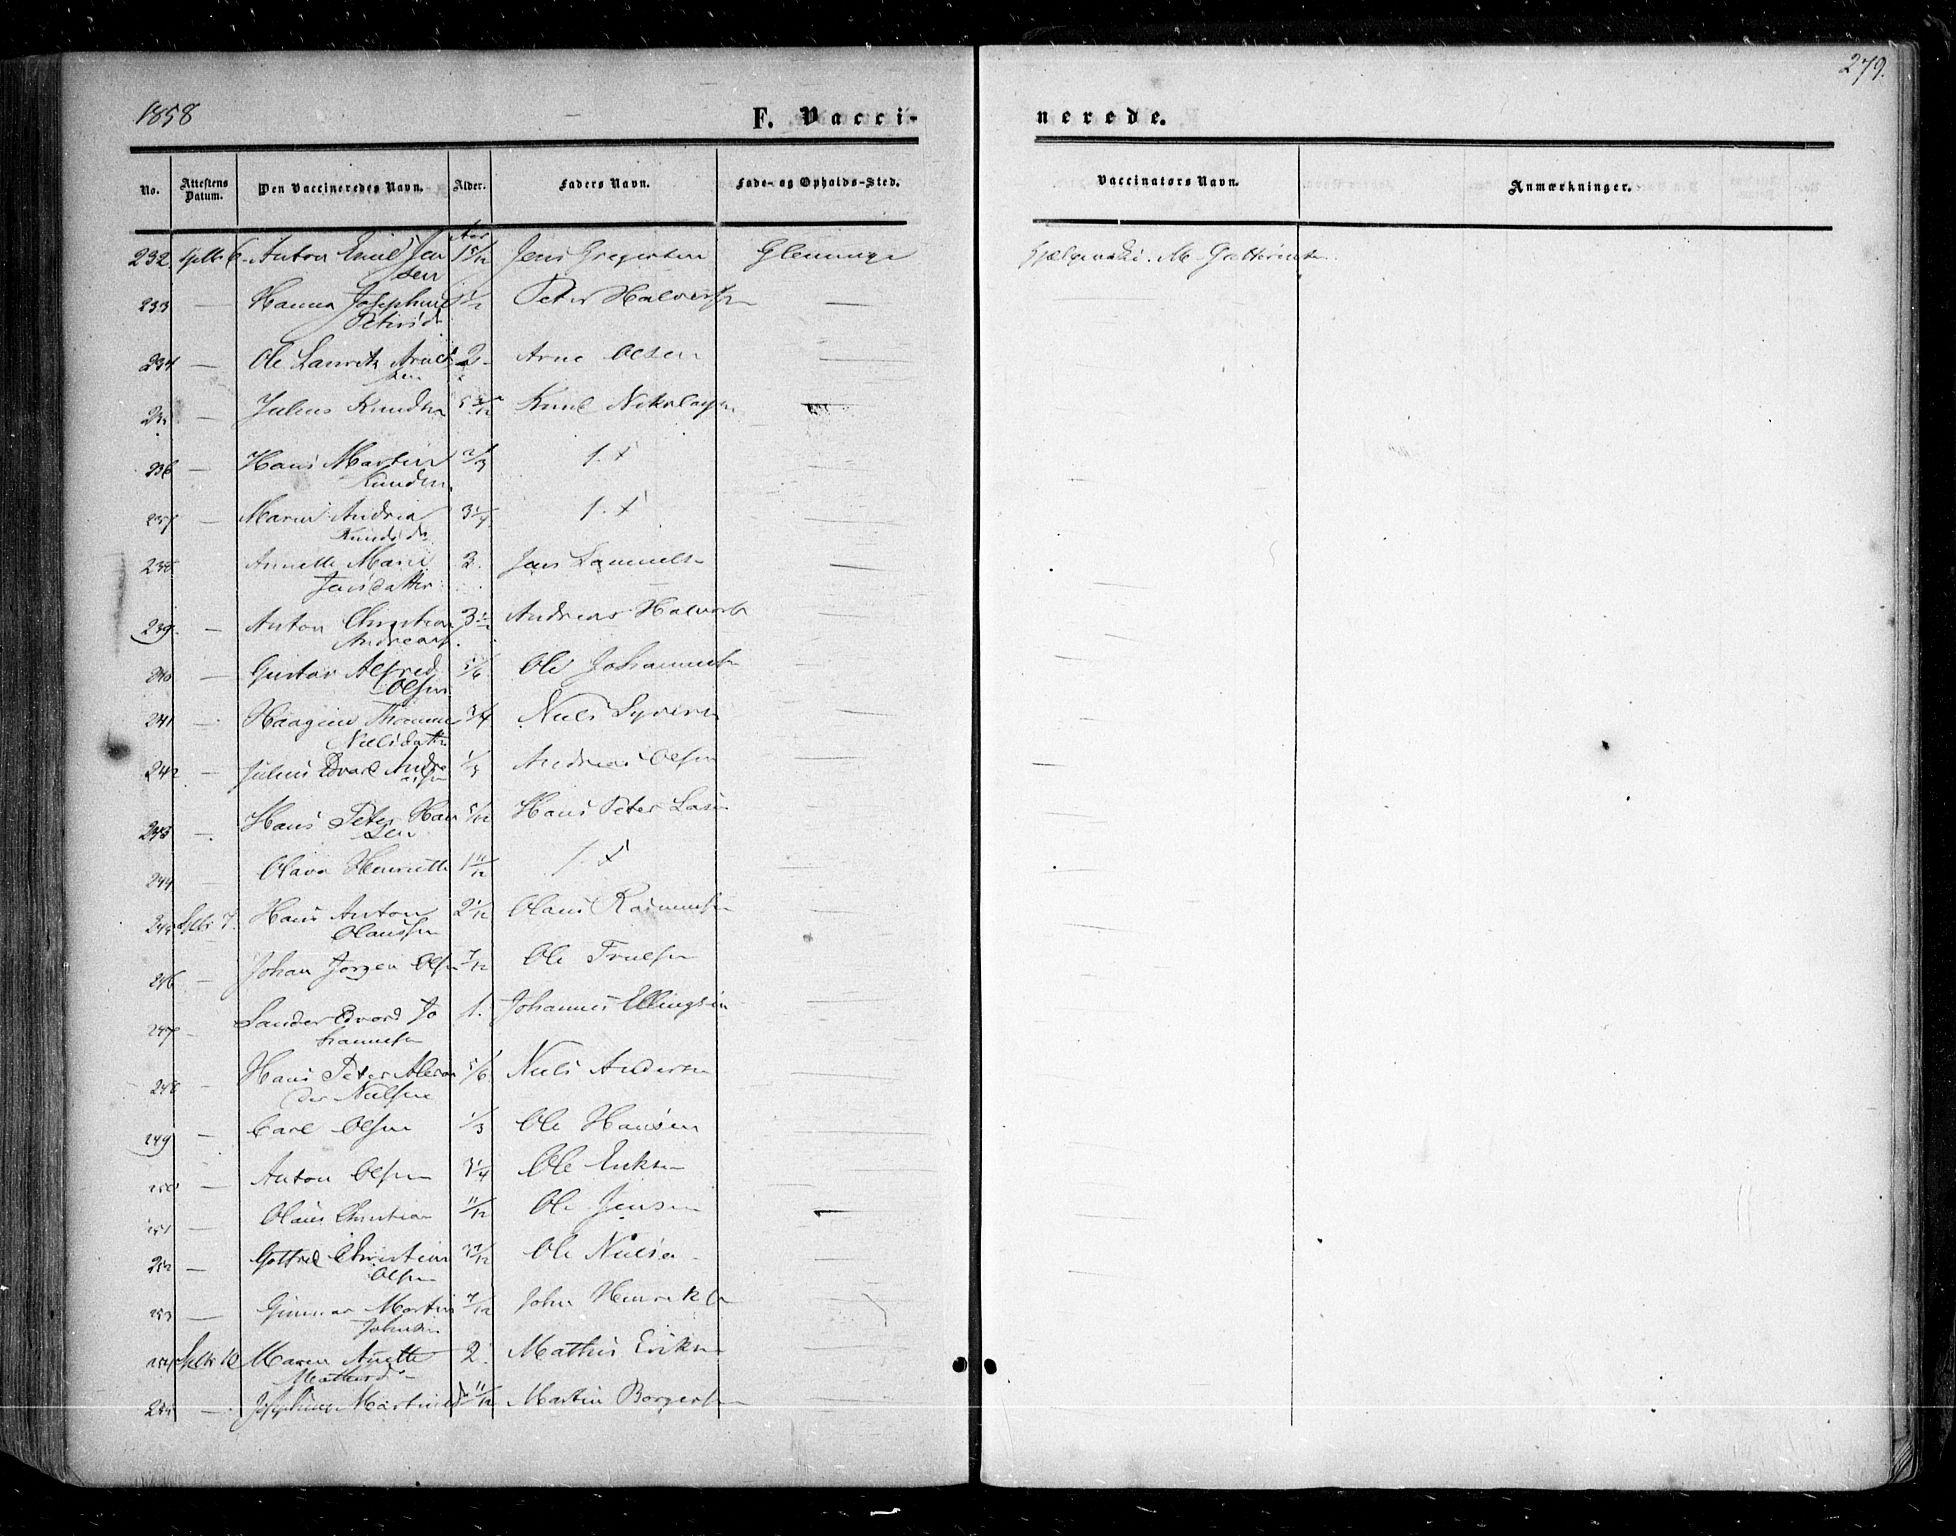 279.
1858
F. Vacci-
nerede.
No. Attestens Datum. Den Vaccineredes Navn. Alder. Faders Navn. Føde- og Opholds-Sted. Vaccinators Navn. Anmærkninger.
Aar
232 Septbr 6. Anton Emil Jen 1 5/12 Jens Gregersen Glemminge M.
sen
233 — Hanna Josephine Peter Halversen —
Petersd.
234 — Ole Lauritz Arne 2 Arne Olsen —
sen
235 — Julius Knudsen Knud Nikolaysen —
236 — Hans Martin 2/3 —
Knudsen
237 — Maren Andrea 3 1/4 —
Knudsd.
238 Annette Marie 3. Jens Samuelsen —
Jensdatter
239. — Anton Christian 3 1/2 Andreas Halvorsen —
Andreas
240 — Gustav Alfred 5/6 Ole Johannesen —
Olsen
241 — Haagine Thomine 3/4 Niels Syversen —
Nielsdatter
242 — Julius Edvard Andre 1/3 Andreas Olsen —
asen
243 — Hans Peter Han 5/12 Hans Peter —
sen
244 — Olava Henriette 1 11/12 —
245 Septbr 7. Hans Anton 2 1/12 Olaus Rasmussen —
Olaussen
246 — Johan Jørgen Olsen 7/12 Ole Truelsen —
247 — Sander Edvard Jo 1. Johannes Ellingsen —
hannesen
248 — Hans Peter Alexan 5/6 Niels Andersen —
der Nielsen
249 — Carl Olsen 1/3 Ole Hansen —
250 — Anton Olsen 3 1/4 Ole Eriksen —
251 — Olaus Christian 11/12 Ole Jensen —
252 — Gottfred Christian Ole Nielsen —
Olsen
253 — Gunnar Martin 7/12 John Henriksen —
Johnsen
254 Septbr 10 Maren Anette 2. Mathis Eriksen —
Mathisd.
255 — Josephine 11/12 Martin Borgersen —